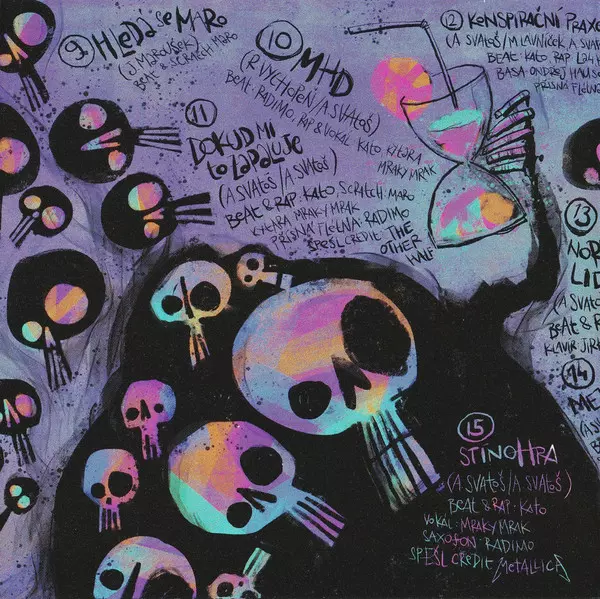 9 HLEDÁ SE MARO
(J. MAROUŠEK)
BEAT & SCRATCH: MARO
10 MHD
(R. VYCHOPEŇ/A. SVATOŠ)
BEAT: RADIMO. RAP & VOKAL: KATO. KYTARA:
MRAKY MRAK
11
DOKUD MI
TO ZAPALUJE
(A SVATOŠ/A SVATOŠ)
BEAT & RAP: KATO. SCRATCH: MARO
KYTARA MRAKY MRAK
PŘÍSNÁ FLÉTNA: RADIMO
ŠPEŠL CREDIT: THE
OTHER
WOLF
12 KONSPIRAČNÍ PRAXE
(A SVATOŠ/M LAVNIČEK, A SVAT
BEAT: KATO. RAP:
BASA: ONDREJ
PŘÍSNÁ FLÉTNA
13
NOR
LID
(A SVATO
BEAT & R
KLAVÍR: JIR
14
ME
(A SV
BE
15
STÍNOHRA
(A SVATOŠ/A SVATOŠ)
BEAT & RAP: KATO
VOKÁL: MRAKY MRAK
SAXOFON: RADIMO
ŠPEŠL CREDIT METALLICA